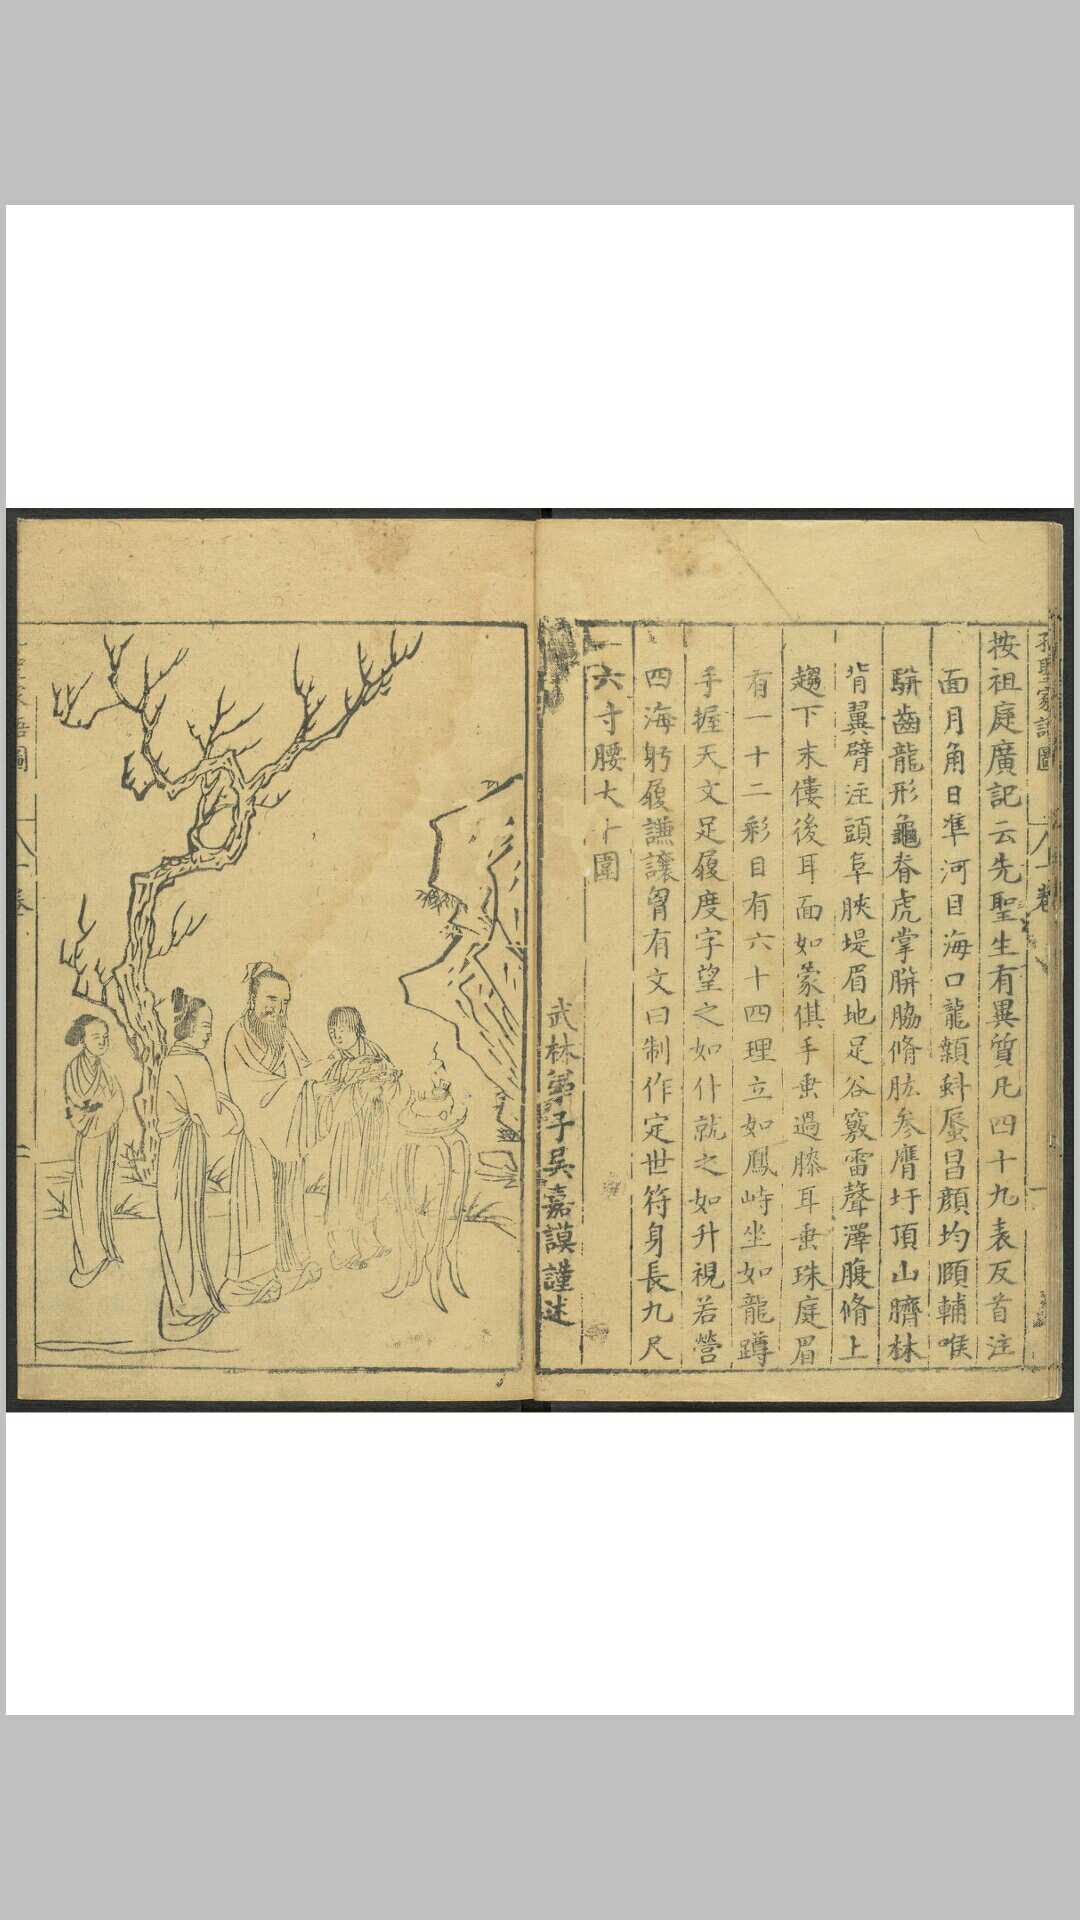 孔聖家語圖 一卷 一
按祖庭廣記云先聖生有異質凡四十九表反首注
面月角日準河目海口龍顙斗唇昌顏均頤輔喉
駢齒龍形龜脊虎掌胼脇脩肱参膺圩頂山臍林
背翼臂注頭阜脥堤眉地足谷竅雷聲澤腹脩上
趨下末僂後耳面如蒙倛手垂過膝耳垂珠庭眉
有一十二彩目有六十四理立如鳳峙坐如龍蹲
手握天文足履度字望之如仆就之如升視若營
四海躬履謙讓胷有文曰制作定世符身長九尺
六寸腰大十圍
武林弟子吳嘉謨謹述
聖家語圖 一卷 二